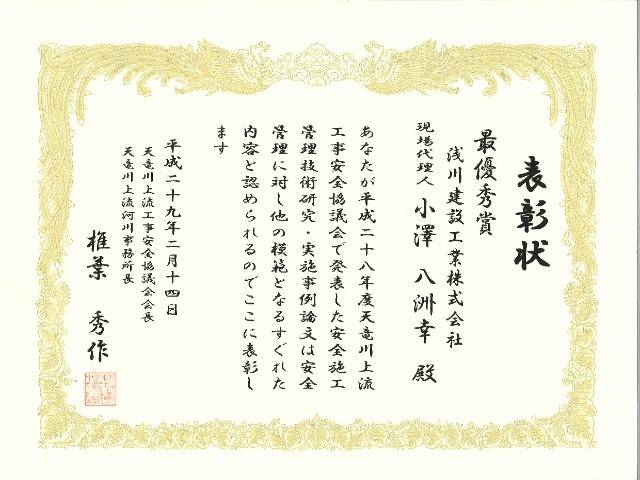 表彰状
最優秀賞
浅川建設工業株式会社
現場代理人 小澤 八洲幸 殿
あなたが平成二十八年度天竜川上流
工事安全協議会で発表した安全施工
管理技術研究・実施事例論文は安全
管理に対し他の模範となるすぐれた
内容と認められるのでここに表彰し
ます
平成二十九年二月十四日
天竜川上流工事安全協議会会長
天竜川上流河川事務所長
椎葉 秀作